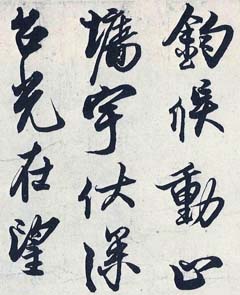 鈞候動止
墻宇伏深
台光在望